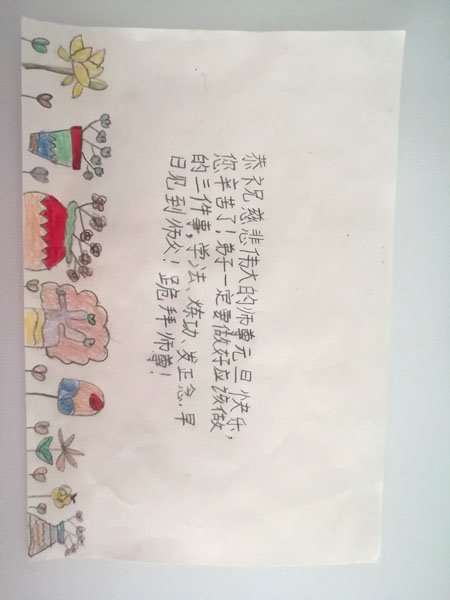 恭祝慈悲伟大的师尊元旦快乐,
您辛苦了!弟子一定要做好应该做
的三件事,学法、炼功、发正念.早
日见到师父!跪拜师尊!